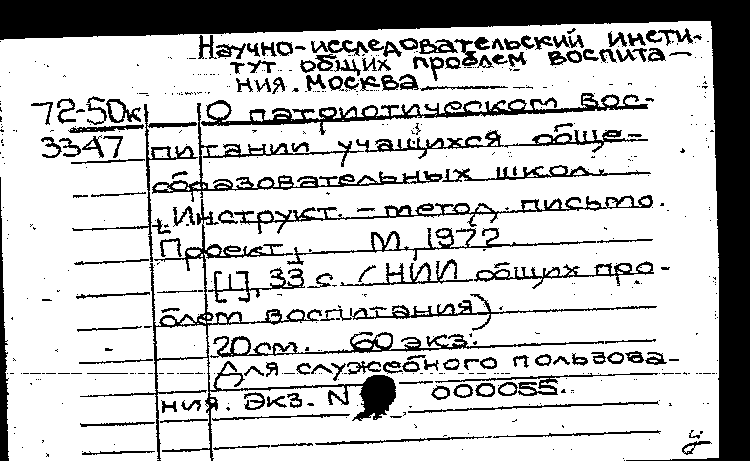 Научно-исследовательский инсти-
тут общих проблем воспита-
ния. Москва
72-50к О патриотическом вос-
3347 питании учащихся обще-
образовательных школ.
Инструкт. - метод. письмо.
Проект. М., 1972.
[1], 33 с. (НИИ общих про-
блем воспитания).
20 см. 60 экз.
Для служебного пользова-
ния. Экз. N 000055.